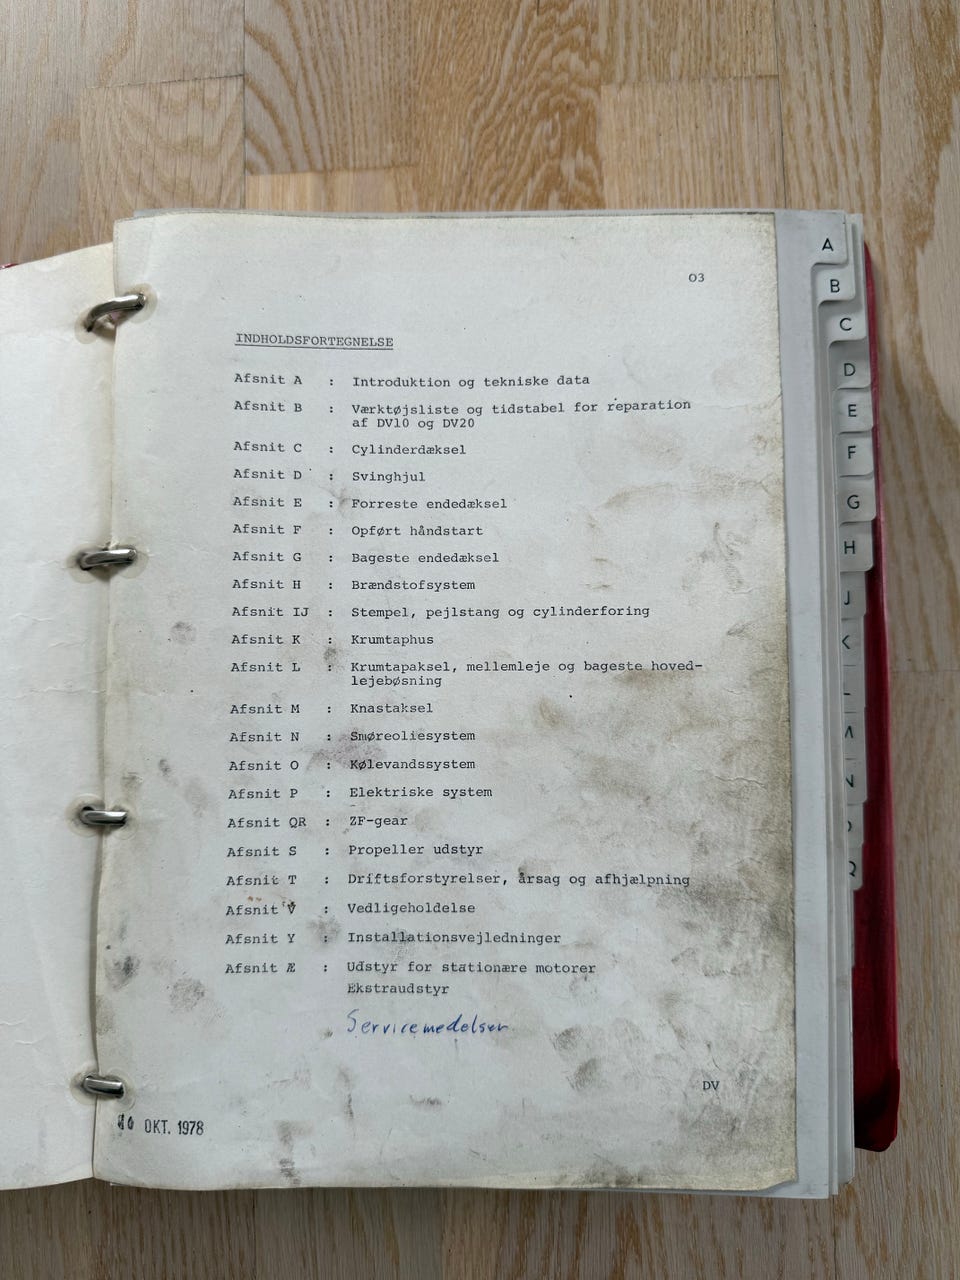 03
INDHOLDSFORTEGNELSE
Afsnit A : Introduktion og tekniske data
Afsnit B : Værktøjsliste og tidstabel for reparation
af DV10 og DV20
Afsnit C : Cylinderdæksel
Afsnit D : Svinghjul
Afsnit E : Forreste endedæksel
Afsnit F : Opført håndstart
Afsnit G : Bageste endedæksel
Afsnit H : Brændstofsystem
Afsnit IJ : Stempel, pejlstang og cylinderforing
Afsnit K : Krumtaphus
Afsnit L : Krumtapaksel, mellemleje og bageste hoved-
lejebøsning
Afsnit M : Knastaksel
Afsnit N : Smøreoliesystem
Afsnit O : Kølevandssystem
Afsnit P : Elektriske system
Afsnit QR : ZF-gear
Afsnit S : Propeller udstyr
Afsnit T : Driftsforstyrelser, årsag og afhjælpning
Afsnit V : Vedligeholdelse
Afsnit Y : Installationsvejledninger
Afsnit Æ : Udstyr for stationære motorer
Ekstraudstyr
Servicemedelser
DV
OKT. 1978
A
B
C
D
E
F
G
H
J
K
L
M
N
Q